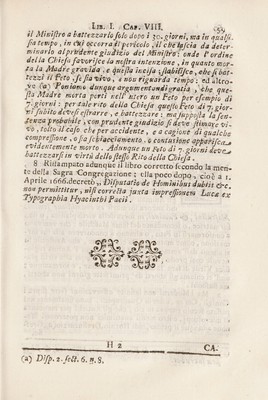 LIB. I. CAP. VIII. 59
il Ministro a battezzarlo solo dopo i 30. giorni, ma in qualsi-
sia tempo, in cui occorra il pericolo, il che lascia da deter-
minarlo al prudente giudizio del Ministro: onde l'ordine
della Chiesa favorisce la nostra intenzione, in quanto mor-
ta la Madre gravida, e questa incisa, stabilisce, che si bat-
tezzi il Feto, se sia vivo, e non riguarda tempo: ed altro-
ve (a) Poniamo dunque argumentandi gratia, che que-
sta Madre morta però nell'utero un Feto per esempio di
7. giorni: per tale rito della Chiesa questo Feto di 7. gior-
ni subito devesi estrarre, e battezzare: ma supposta la sen-
tenza probabile, con prudente giudizio si deve stimare vi-
vo, tolto il caso che per accidente, e a cagione di qualche
compressione, o sia schiacciamento, o contusione apparisca
evidentemente morto. Adunque un Feto di 7. giorni deve
battezzarsi in virtù dello stesso Rito della Chiesa.
8 Ristampato adunque il libro corretto secondo la men-
te della Sagra Congregazione; ella poco dopo, cioè a 1.
Aprile 1666. decretò, Disputatio de Hominibus dubiis &c.
non permittitur, nisi correcta juxta impressionem Lucæ ex
Typographia Hyacinthi Pacii.
H 2 CA.
(a) Disp. 2. sect. 6. n. 8.